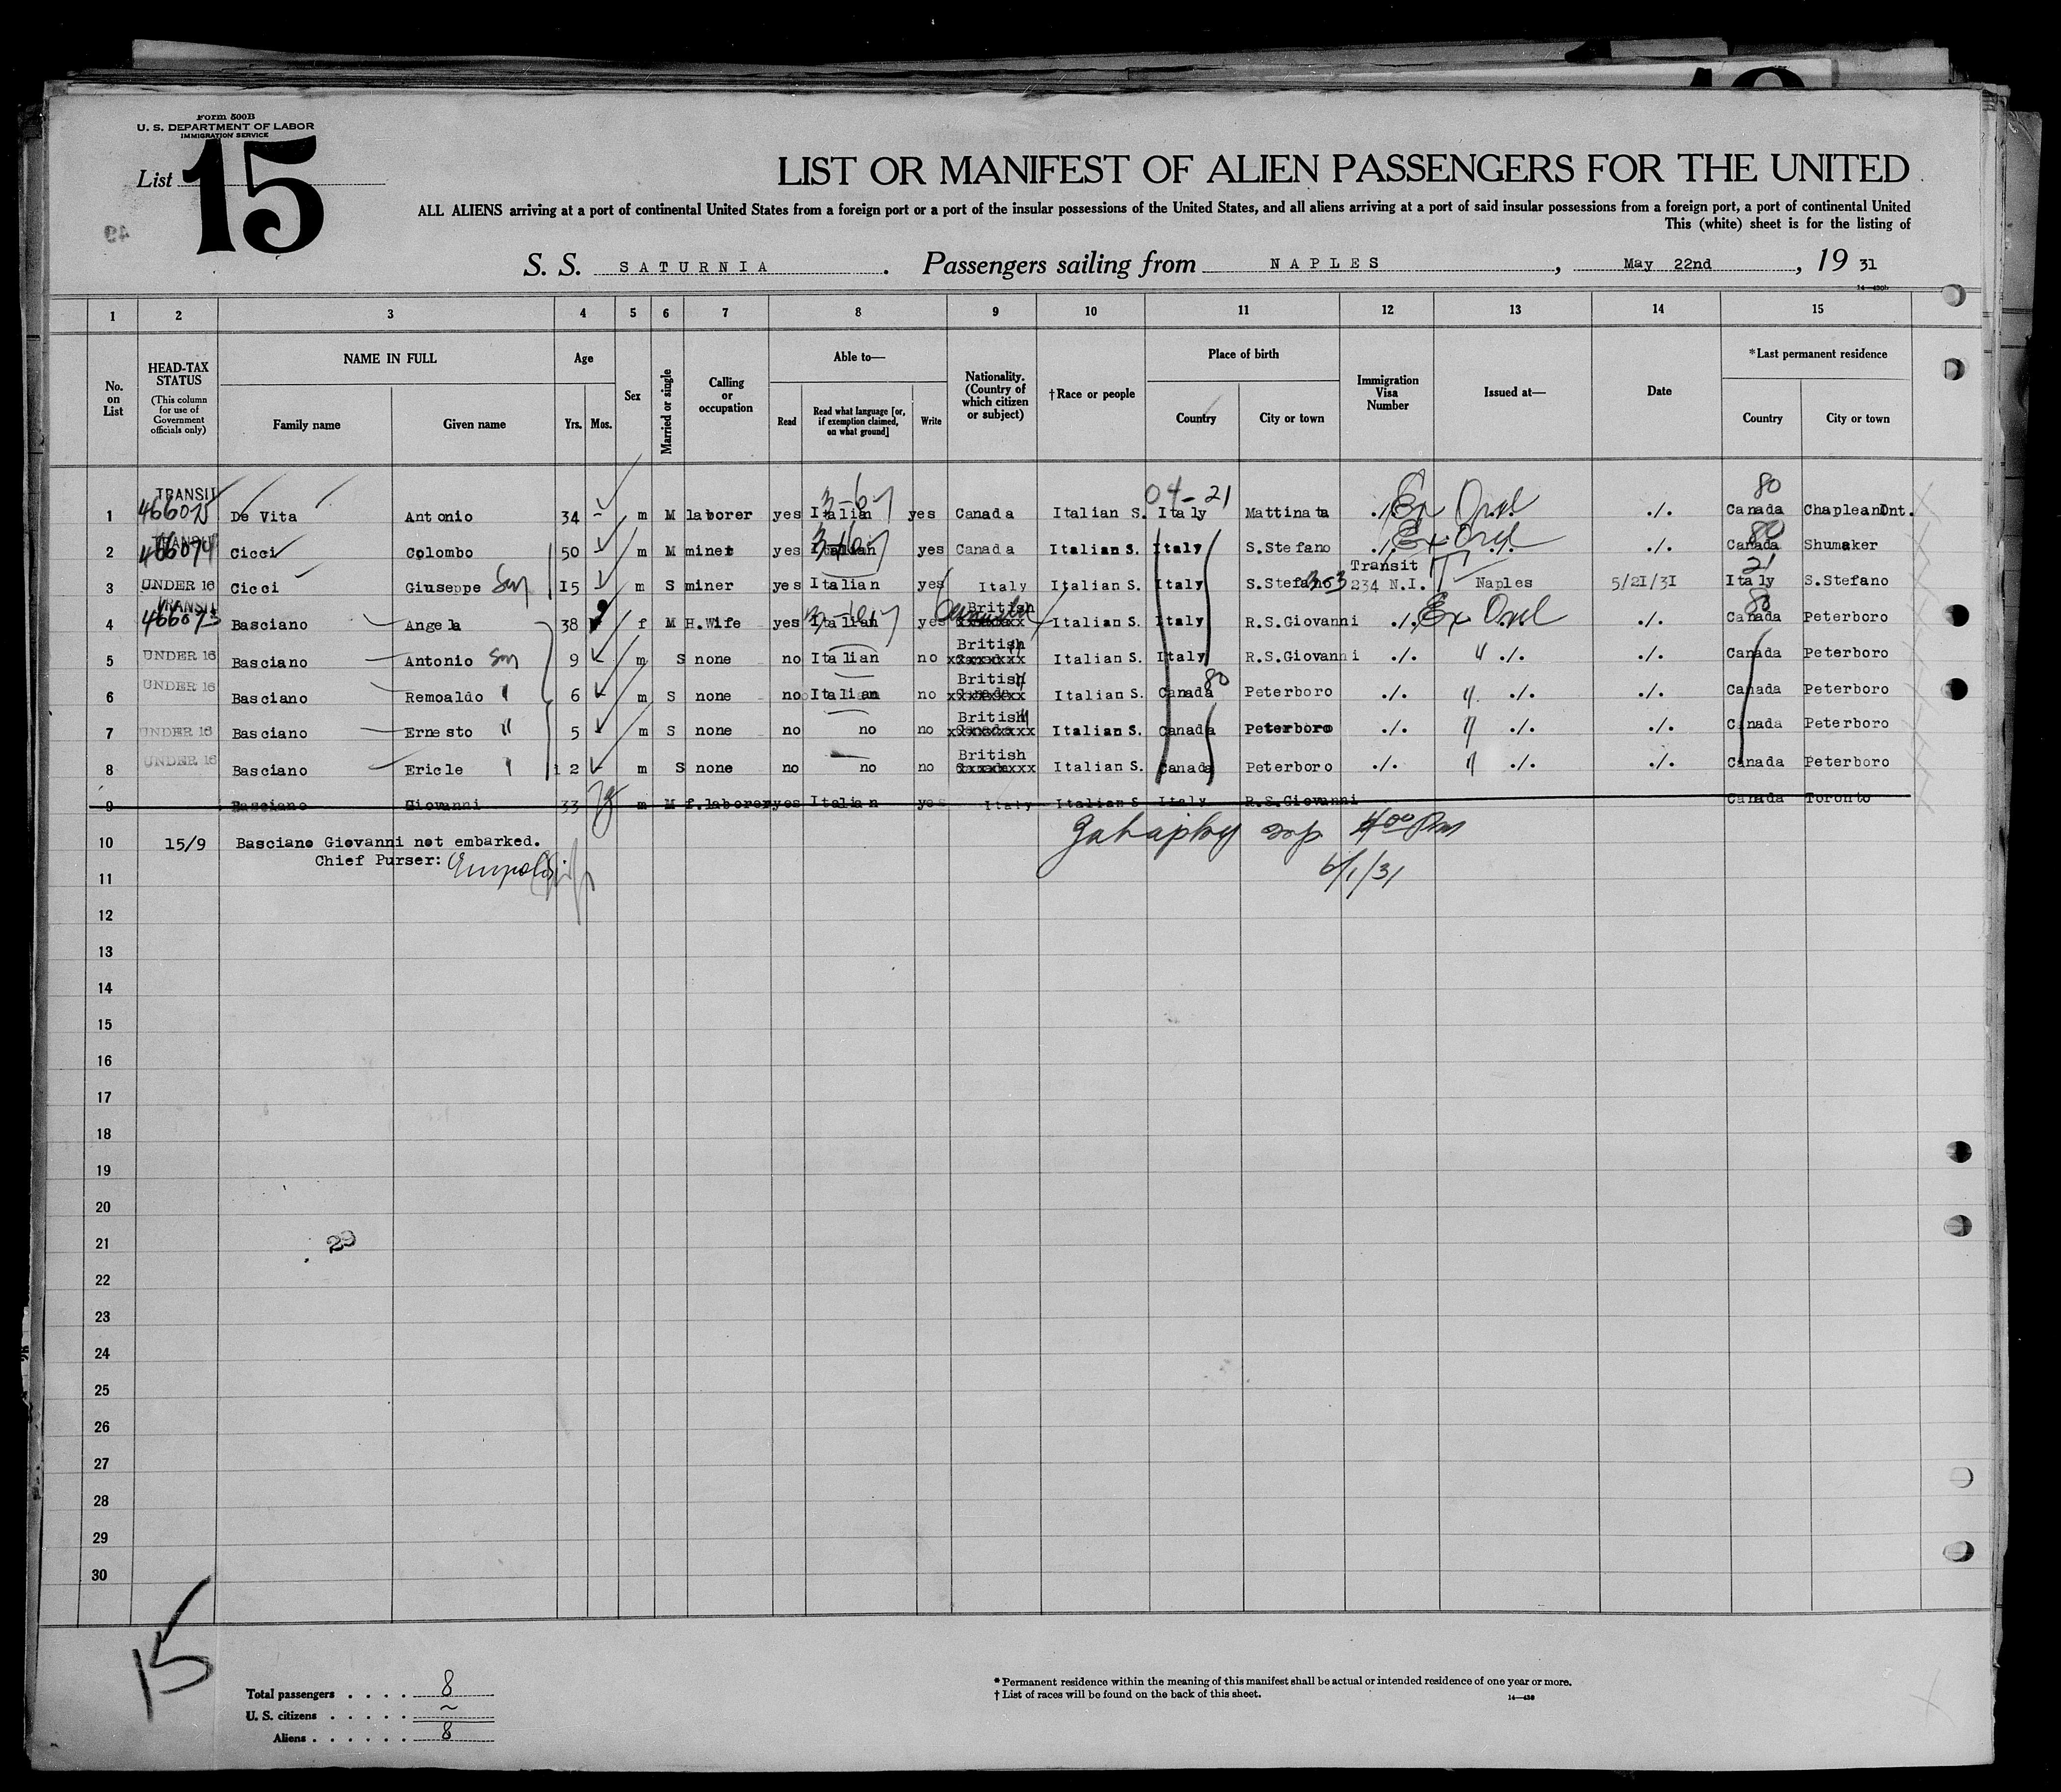 Form 500B
U. S. DEPARTMENT OF LABOR
IMMIGRATION SERVICE
List 15
LIST OR MANIFEST OF ALIEN PASSENGERS FOR THE UNITED
ALL ALIENS arriving at a port of continental United States from a foreign port or a port of the insular possessions of the United States, and all aliens arriving at a port of said insular possessions from a foreign port, a port of continental United
This (white) sheet is for the listing of
S. S. SATURNIA. Passengers sailing from NAPLES, May 22nd, 19 31
1 2 3 4 5 6 7 8 9 10 11 12 13 14 15
No. on List
HEAD-TAX STATUS (This column for use of Government officials only)
NAME IN FULL
Family name Given name
Age
Yrs. Mos.
Sex
Married or single
Calling or occupation
Able to—
Read Read what language [or, if exemption claimed, on what ground] Write
Nationality. (Country of which citizen or subject)
†Race or people
Place of birth
Country City or town
Immigration Visa Number
Issued at—
Date
*Last permanent residence
Country City or town
TRANSIT 3-67 04-21 80
1 466075 De Vita Antonio 34 m M laborer yes Italian yes Canada Italian S. Italy Mattinata ./. Ex ./. Canada Chaplean Ont.
TRANSIT 80
2 466074 Cicci Colombo 50 m M miner yes Italian yes Canada Italian S. Italy S.Stefano ./. Ex ./. Canada Shumaker
Transit 21
3 UNDER 16 Cicci Giuseppe Son 15 m S miner yes Italian yes Italy Italian S. Italy S.Stefano 234 N.I. Naples 5/21/31 Italy S.Stefano
TRANSIT British 80
4 466073 Basciano Angela 38 f M H.Wife yes Italian yes Italian S. Italy R.S.Giovanni ./. Ex ./. Canada Peterboro
British
5 UNDER 16 Basciano Antonio Son 9 m S none no Italian no xxxxxxxx Italian S. Italy R.S.Giovanni ./. " ./. ./. Canada Peterboro
British 80
6 UNDER 16 Basciano Remoaldo " 6 m S none no Italian no Italian S. Canada Peterboro ./. " ./. ./. Canada Peterboro
British
7 UNDER 16 Basciano Ernesto " 5 m S none no no no Italian S. Canada Peterboro ./. " ./. ./. Canada Peterboro
British
8 UNDER 16 Basciano Ericle " 2 m S none no no no Italian S. Canada Peterboro ./. " ./. ./. Canada Peterboro
9 Basciano Giovanni 33 m M f.laborer yes Italian yes Italy Italian S Italy R.S.Giovanni Canada Toronto
10 15/9 Basciano Giovanni not embarked. 4 00 Pm
Chief Purser:
6/1/31
11
12
13
14
15
16
17
18
19
20
21
29
22
23
24
25
26
27
28
29
30
15
Total passengers . . . . 8
U. S. citizens . . . . . ~
Aliens . . . . . . 8
* Permanent residence within the meaning of this manifest shall be actual or intended residence of one year or more.
† List of races will be found on the back of this sheet.